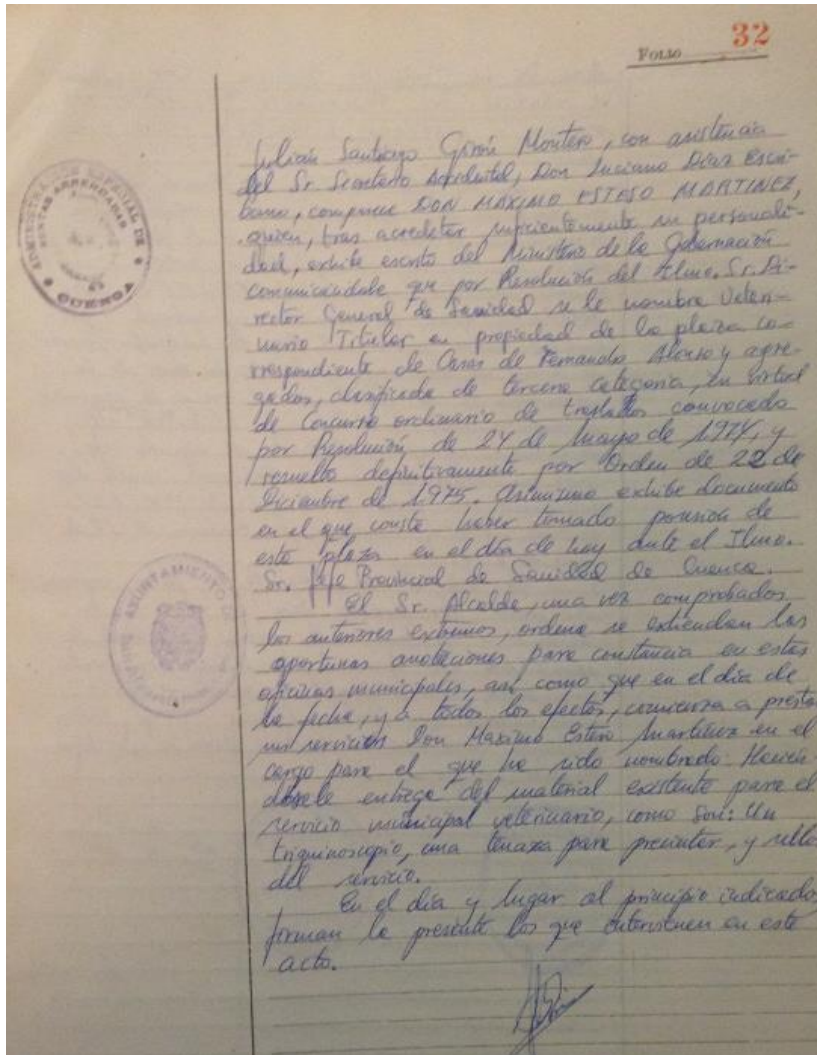 FOLIO 32
Julián Santiago Girón Montero, con asistencia
del Sr. Secretario Accidental, Don Luciano Díaz Escri-
bano, comparece DON MAXIMO ESTESO MARTINEZ,
quien, tras acreditar suficientemente su personali-
dad, exhibe escrito del Ministerio de la Gobernación
comunicándole que por Resolución del Ilmo. Sr. Di-
rector General de Sanidad se le nombra Veteri-
nario Titular en propiedad de la plaza co-
rrespondiente de Casas de Fernando Alonso y agre-
gados, clasificada de tercera categoría, en virtud
de Concurso ordinario de traslados convocado
por Resolución de 24 de Mayo de 1974, y
resuelto definitivamente por Orden de 22 de
Diciembre de 1975. Asimismo exhibe documento
en el que consta haber tomado posesión de
esta plaza en el día de hoy ante el Ilmo.
Sr. Jefe Provincial de Sanidad de Cuenca.
El Sr. Alcalde, una vez comprobados
los anteriores extremos, ordena se extiendan las
oportunas anotaciones para constancia en estas
oficinas municipales, así como que en el día de
la fecha, y a todos los efectos, comienza a prestar
sus servicios Don Maximo Esteso Martínez en el
cargo para el que ha sido nombrado. Hacién-
dosele entrega del material existente para el
servicio municipal veterinario, como son: Un
triquinoscopio, una tenaza para precintar, y sello
del servicio.
En el día y lugar al principio indicado,
firman la presente los que intervienen en este
acto.
ADMINISTRACION ESPECIAL DE
RENTAS ARRENDADAS
CUENCA
AYUNTAMIENTO